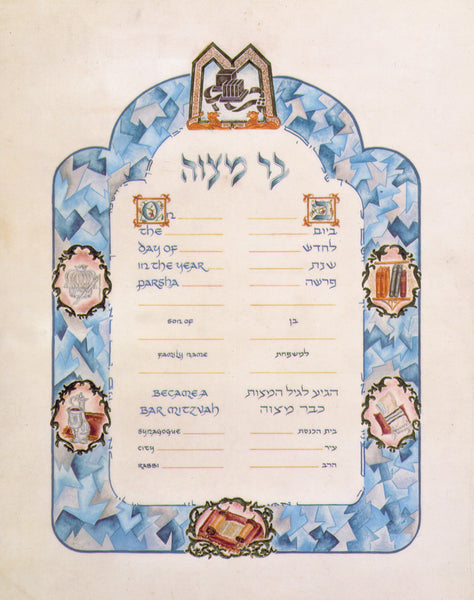 בר מצוה
On
the
day of
in the year
parsha
son of
family name
became a
bar mitzvah
synagogue
city
rabbi
ביום
לחדש
שנת
פרשה
בן
למשפחת
הגיע לגיל המצות
כבר מצוה
בית הכנסת
עיר
הרב